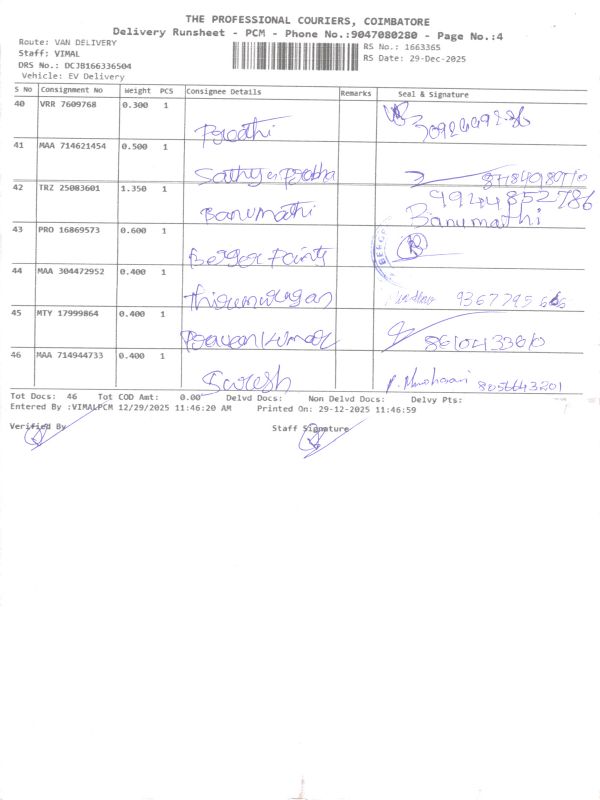 THE PROFESSIONAL COURIERS, COIMBATORE
Delivery Runsheet - PCM - Phone No.:9047080280 - Page No.:4
Route: VAN DELIVERY
RS No.: 1663365
Staff: VIMAL
RS Date: 29-Dec-2025
DRS No.: DCJB166336504
Vehicle: EV Delivery
S No Consignment No Weight PCS Consignee Details Remarks Seal & Signature
40 VRR 7609768 0.300 1
Preethi
41 MAA 714621454 0.500 1
Sathya Prabha
42 TRZ 25083601 1.350 1 9944852786
Banumathi Banumathi
43 PRO 16869573 0.600 1
Berger Paints
44 MAA 304472952 0.400 1
Thirumurugan 9367795666
45 MTY 17999864 0.400 1
Pravean Kumar
46 MAA 714944733 0.400 1
Suresh 8056643201
Tot Docs: 46 Tot COD Amt: 0.00 Delvd Docs: Non Delvd Docs: Delvy Pts:
Entered By :VIMALPCM 12/29/2025 11:46:20 AM Printed On: 29-12-2025 11:46:59
Verified By Staff Signature